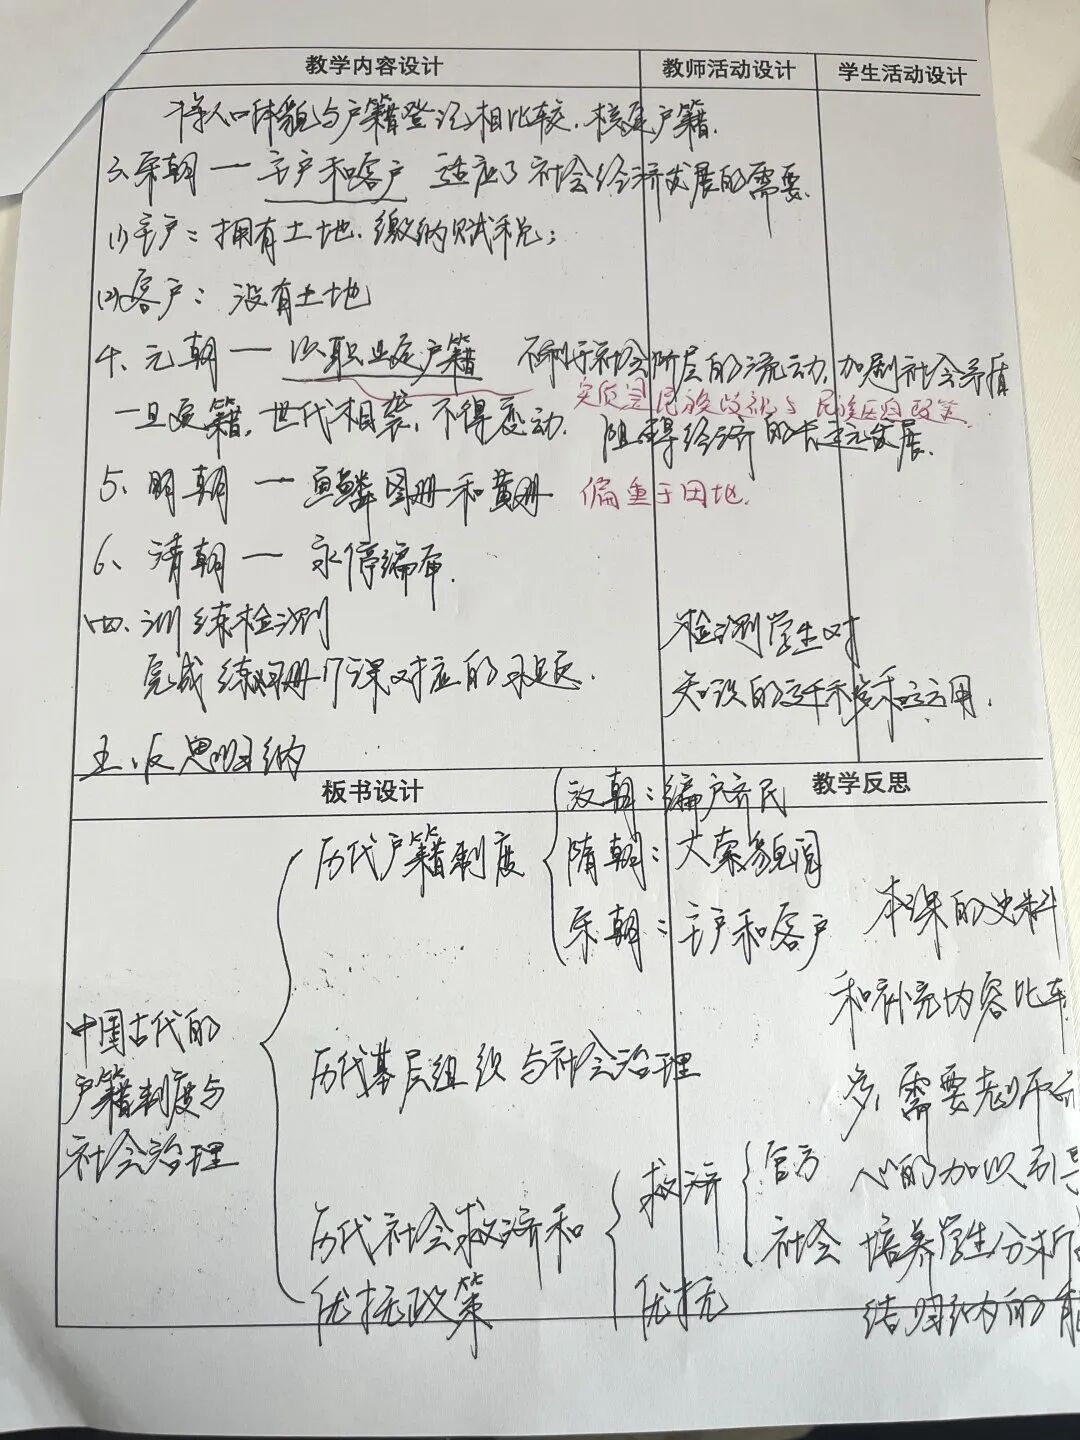 教学内容设计 教师活动设计 学生活动设计
将人口体貌与户籍登记相比较,核定户籍.
3、宋朝 — 主户和客户 适应了社会经济发展的需要.
(1)主户：拥有土地、缴纳赋税；
(2)客户：没有土地
4、元朝 — 以职业定户籍 不利于社会阶层的流动,加剧社会矛盾
实质是民族政权与民族压迫政策.
一旦定籍,世代相袭,不得变动. 阻碍经济的长远发展.
5、明朝 — 鱼鳞图册和黄册 偏重于田地.
6、清朝 — 永停编审.
四、训练检测
完成练习册17课对应的习题. 检测学生对
知识的迁移和运用.
五、反思归纳
板书设计 教学反思
中国古代的
户籍制度与
社会治理
历代户籍制度
汉朝：编户齐民
隋朝：大索貌阅
宋朝：主户和客户
历代基层组织与社会治理
历代社会救济和
优抚政策
救济
官方
社会
优抚
本课的史料
和补充内容比较
多,需要老师
心的加以引导
培养学生分析
结归纳的能